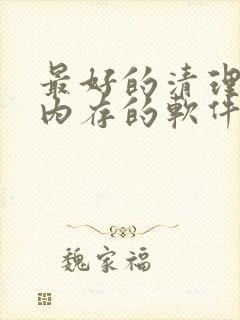 最好的清理
内存的軟件
魏家福